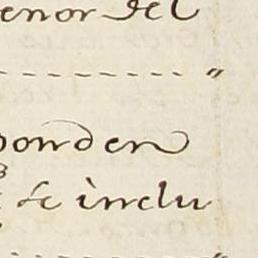 enor del
----------- "
ponden
se inclu
----------- "